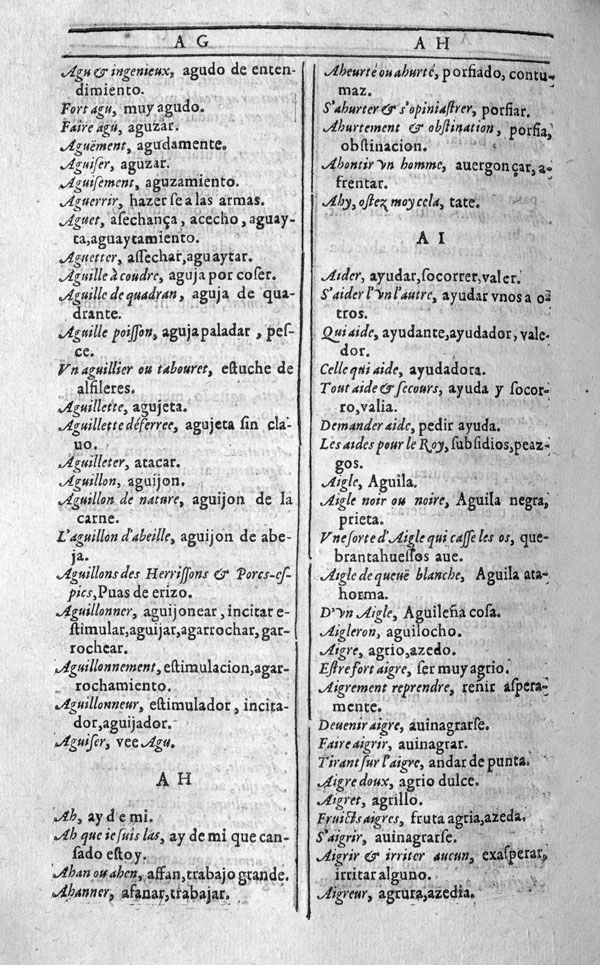 AG
Agu & ingenieux, agudo de enten-
dimiento.
Fort agu, muy agudo.
Faire agu, aguzar.
Aguëment, agudamente.
Aguiſer, aguzar.
Aguiſement, aguzamiento.
Aguerrir, hazer ſe a las armas.
Aguet, aſechança, acecho, aguay-
ta,aguaytamiento.
Aguetter, aſſechar,aguaytar.
Aguille à coudre, aguja por coſer.
Aguille de quadran, aguja de qua-
drante.
Aguille poiſſon, aguja paladar, peſ-
ce.
Vn aguillier ou tabouret, eſtuche de
alfileres.
Aguillette, agujeta.
Aguillette déferree, agujeta ſin cla-
uo.
Aguilleter, atacar.
Aguillon, aguijon.
Aguillon de nature, aguijon de la
carne.
L'aguillon d'abeille, aguijon de abe-
ja.
Aguillons des Herriſſons & Porcs-eſ-
pics, Puas de erizo.
Aguillonner, aguijonear, incitar e-
ſtimular,aguijar,agarrochar, gar-
rochear.
Aguillonnement, eſtimulacion,agar-
rochamiento.
Aguillonneur, eſtimulador, incita-
dor,aguijador.
Aguiſer, vee Agu.
AH
Ah, ay de mi.
Ah que ie ſuis las, ay de mi que can-
ſado eſtoy.
Ahan ou ahen, affan,trabajo grande.
Ahanner, afanar,trabajar.
AH
Aheurté ou ahurté, porfiado, contu-
maz.
S'ahurter & s'opiniaſtrer, porfiar.
Ahurtement & obſtination, porfia,
obſtinacion.
Ahontir vn homme, auergonçar, a-
frentar.
Ahy, oſtez moy cela, tate.
AI
Aider, ayudar,ſocorrer,valer.
S'aider l'vn l'autre, ayudar vnos a o-
tros.
Qui aide, ayudante,ayudador, vale-
dor.
Celle qui aide, ayudadora.
Tout aide & ſecours, ayuda y ſocor-
ro,valia.
Demander aide, pedir ayuda.
Les aides pour le Roy, ſubſidios,peaz-
gos.
Aigle, Aguila.
Aigle noir ou noire, Aguila negra,
prieta.
Vne ſorte d'Aigle qui caſſe les os, que-
brantahueſſos aue.
Aigle de queuë blanche, Aguila ata-
horma.
D'vn Aigle, Aguileña coſa.
Aigleron, aguilocho.
Aigre, agrio,azedo.
Eſtre fort aigre, ſer muy agrio.
Aigrement reprendre, reñir aſpera-
mente.
Deuenir aigre, auinagrarſe.
Faire aigrir, auinagrar.
Tirant ſur l'aigre, andar de punta.
Aigre doux, agrio dulce.
Aigret, agrillo.
Fruicts aigres, fruta agria,azeda.
S'aigrir, auinagrarſe.
Aigrir & irriter aucun, exaſperar,
irritar alguno.
Aigreur, agrura,azedia.